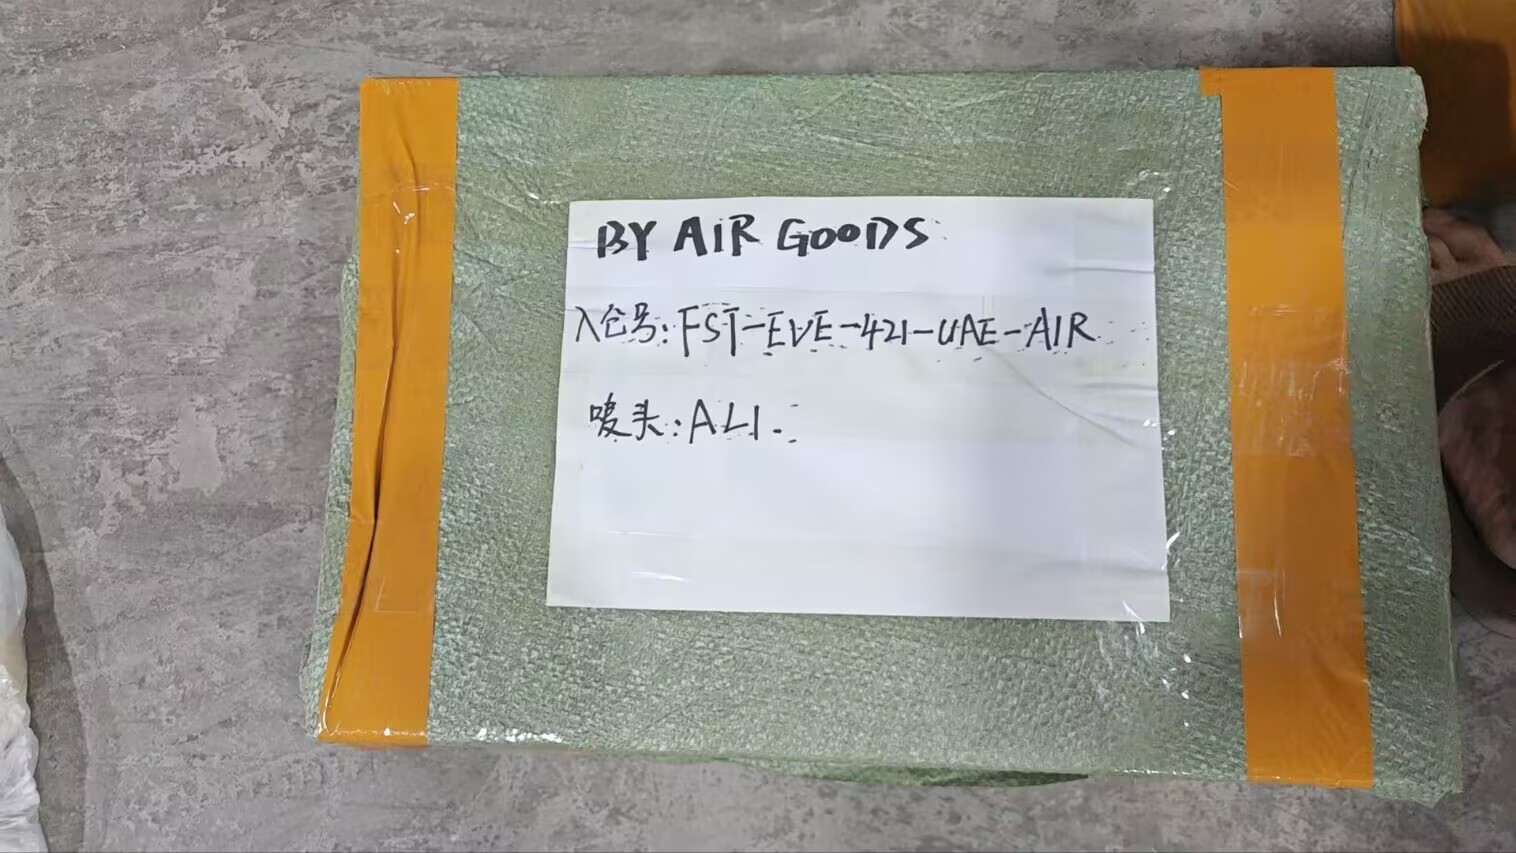 BY AIR GOODS
入仓号:FST-EVE-421-UAE-AIR
唛头:ALI.